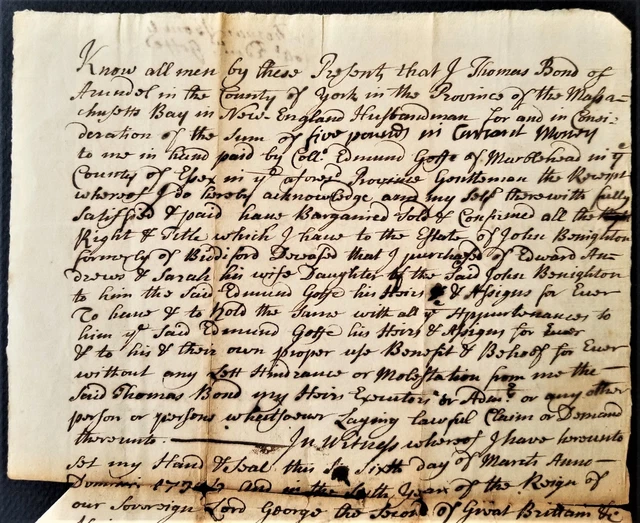 Know all men by these Presents that I Thomas Bond of
Arundel in the County of York in the Province of the Massa-
chusetts Bay in New England Husbandman for and in Consi-
deration of the Sum of five pounds in Currant Money
to me in hand paid by Coll.o Edmund Goffe of Marblehead in ye
County of Essex in ye aforesd Province Gentleman the Receipt
whereof I do hereby acknowledge and my self therewith fully
Satisfied & paid have Bargained Sold & Confirmed all the
Right & Title which I have to the Estate of John Benighton
formerly of Biddiford Deceased that I purchased of Edward An-
drews & Sarah his wife Daughter of the Said John Benighton
to him the Said Edmund Goffe his Heirs & Assigns for Ever
To have & to Hold the Same with all ye Appurtenances to
him ye Said Edmund Goffe his Heirs & Assigns for Ever
& to his & their own proper use Benefit & Behoof for Ever
without any Lett Hindrance or Molestation from me the
Said Thomas Bond my Heirs Executors or Admrs or any other
person or persons whatsoever Laying lawful Claim or Demand
thereunto. In Witness whereof I have hereunto
Set my Hand & Seal this Sixth day of March Anno
Domini and in the Year of the Reign of
our Sovereign Lord George the Second of Great Brittain &c